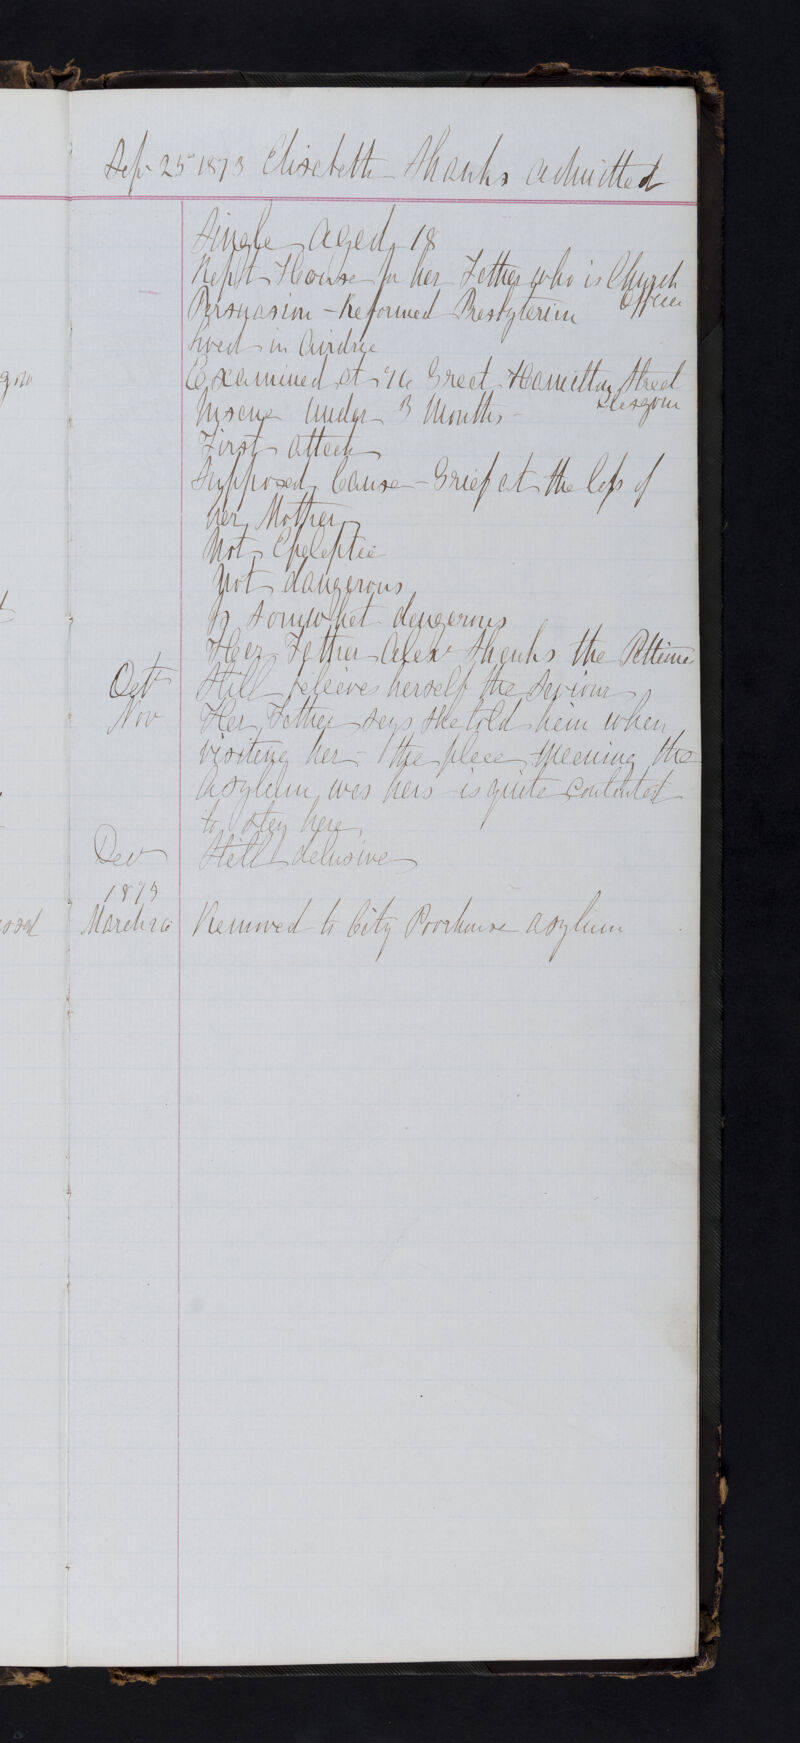 Sep 25 1873 Elisabeth Shanks admitted
Single aged 18
Kept House for her Father who is Church
Officer
Persuasion - Reformed Presbyterian
Lived in Airdrie
Examined at Great Hamilton Street
Glasgow
Insane under 3 Months -
First attack
Supposed Cause - Grief at the loss of
her Mother
Not Epeleptic
Not dangerous
Is somewhat dangerous
Her Father Alexr Shanks the Petitioner
Oct Still believes herself the Saviour
Nov Her Father says she told him when
visiting her - the place meaning the
Asylum was hers - is quite contented
to stay here.
Dec Still delusive
1875
March 20 Removed to City Poorhouse Asylum